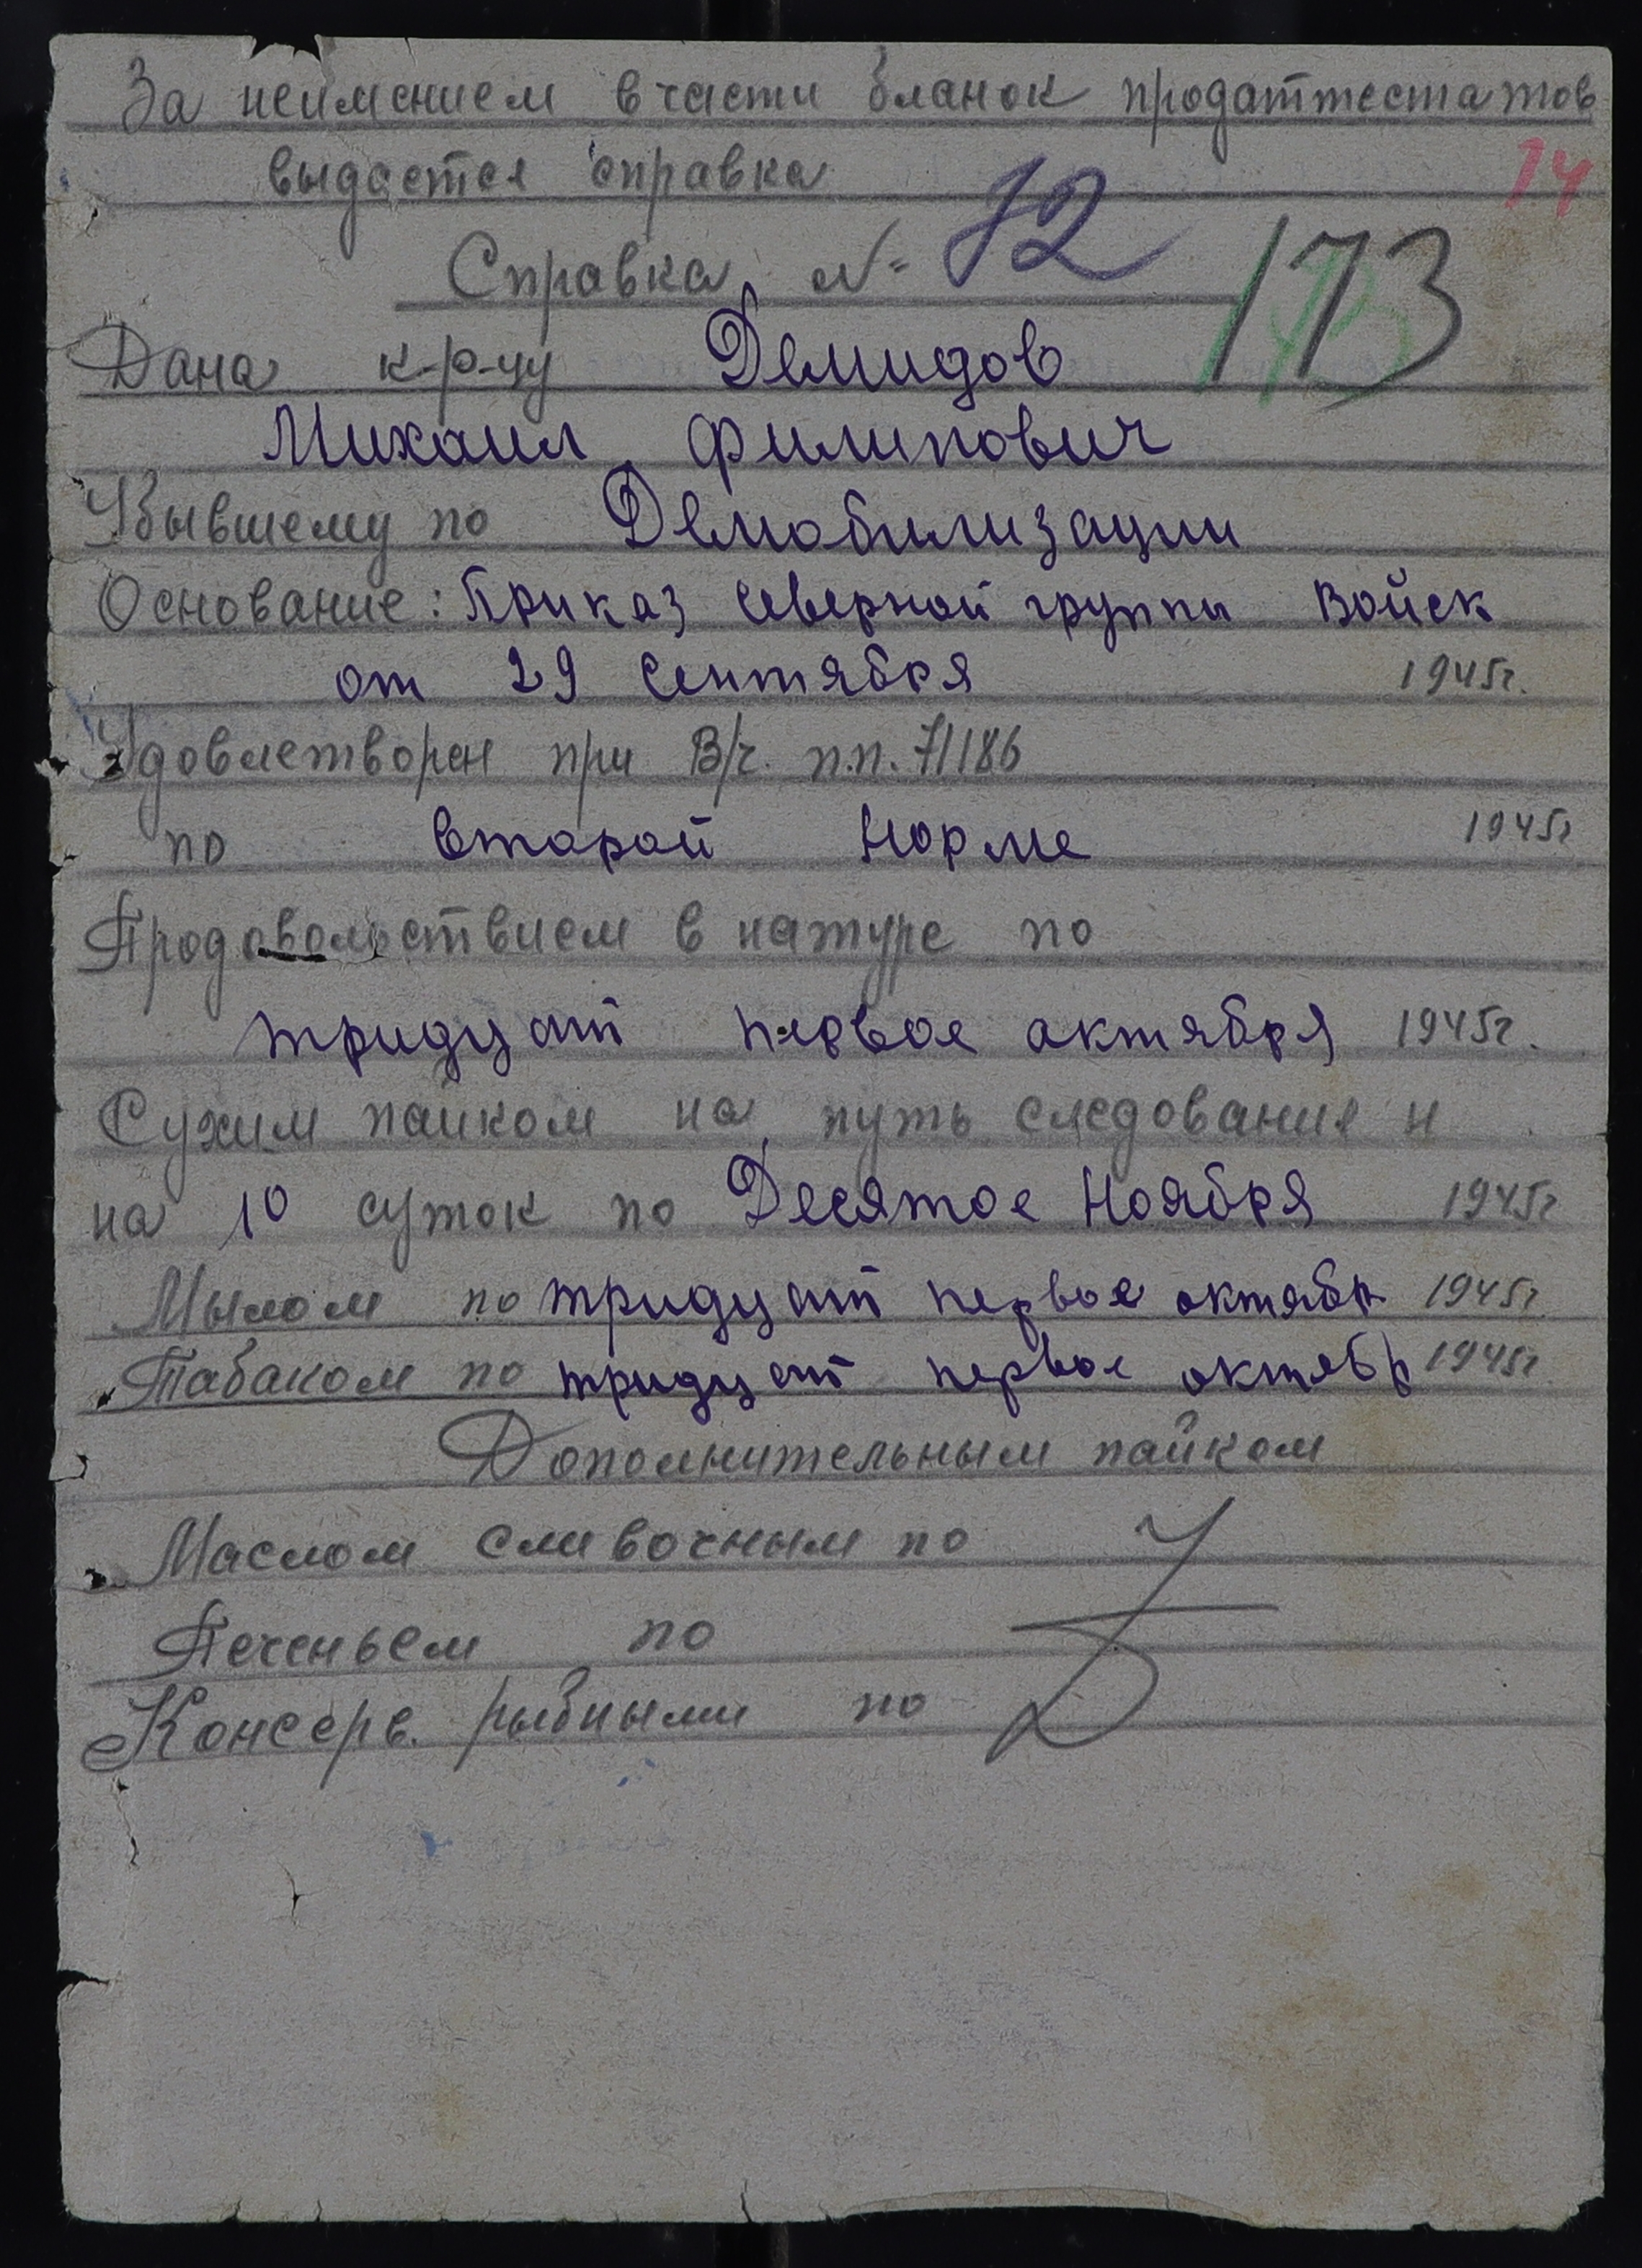 За неимением в части бланок продаттестатов
выдается справка
14
Справка № 72
173
Дана к-р-цу Демидов
Михаил Филипович
Убывшему по Демобилизации
Основание: Приказ Северной группы Войск
от 29 Сентября 1945г.
Удовлетворен при В/ч. п.п. 71186
по второй норме 1945г
Продовольствием в натуре по
тридцать первое октября 1945г.
Сухим пайком на путь следования и
на 10 суток по Десятое Ноября 1945г
Мылом по тридцать первое октябр 1945г.
Табаком по тридцать первое октябр 1945г.
Дополнительным пайком
Маслом сливочным по
Печеньем по
Консерв. рыбными по